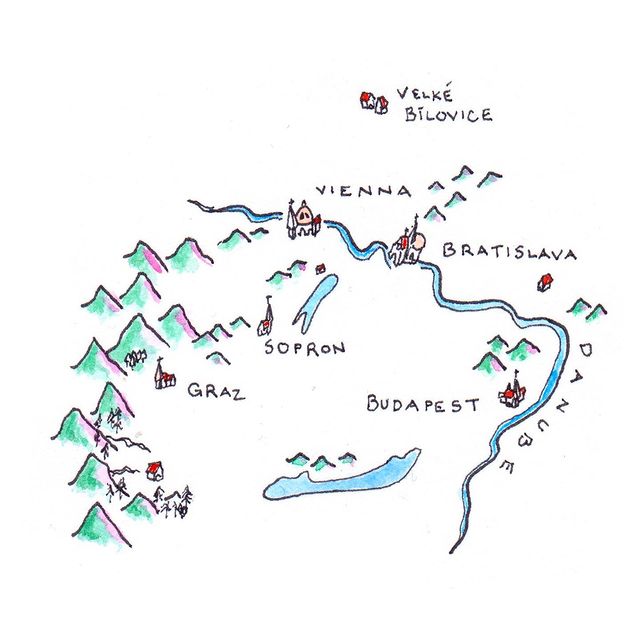 VELKÉ
BÍLOVICE
VIENNA
BRATISLAVA
SOPRON
GRAZ
BUDAPEST
DANUBE